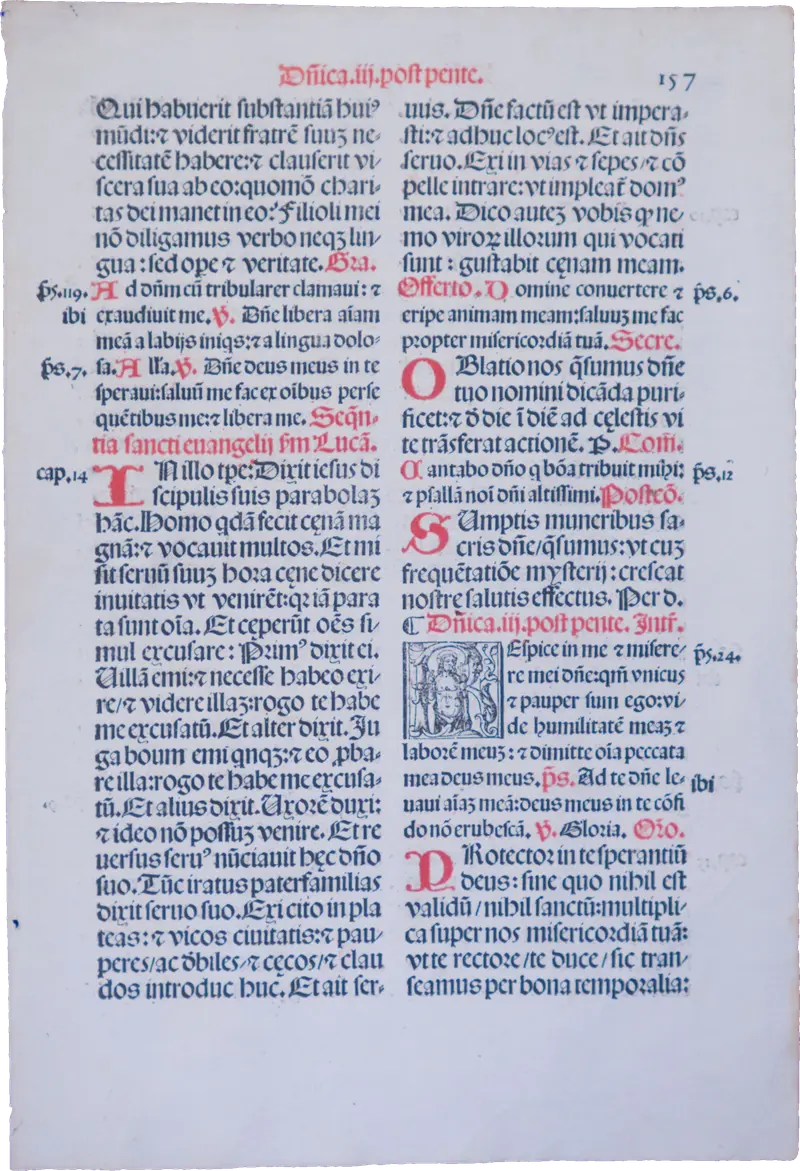 Dñica.iij.post pente.
157
Qui habuerit substantiã huiꝰ
mũdi:⁊ viderit fratrẽ suuꝫ ne⸗
cessitatẽ habere:⁊ clauserit vi⸗
scera sua ab eo:quomõ chari⸗
tas dei manet in eo: Filioli mei
nõ diligamus verbo neqꝫ lin⸗
gua: sed oꝑe ⁊ veritate. Gra.
p̃s.119. A d dñm cũ tribularer clamaui: ⁊
ibi exaudiuit me. ℣. Dñe libera aĩam
meã a labijs iniqs:⁊ a lingua dolo⸗
p̃s.7. sa. A lľa. ℣. Dñe deus meus in te
speraui:saluũ me fac ex oĩbus perse
quẽtibus me:⁊ libera me. Seqñ⸗
tia sancti euangelij ẜm Lucã.
cap.14 IN illo tpe: Dixit iesus di
scipulis suis parabolaꝫ
hãc. Homo qdã fecit cęnã ma
gnã:⁊ vocauit multos. Et mi
sit seruũ suuꝫ hora cęne dicere
inuitatis vt venirẽt:qꝛ iã para
ta sunt oĩa. Et cęperũt oẽs si⸗
mul excusare: Primꝰ dixit ei.
Uillã emi:⁊ necesse habeo exi⸗
re/⁊ videre illaꝫ:rogo te habe
me excusatũ. Et alter dixit. Ju
ga boum emi qnqꝫ:⁊ eo ꝓba⸗
re illa:rogo te habe me excusa⸗
tũ. Et alius dixit. Uxorẽ duxi:
⁊ ideo nõ possuꝫ venire. Et re
uersus seruꝰ nũciauit hęc dño
suo. Tũc iratus paterfamilias
dixit seruo suo. Exi cito in pla
teas:⁊ vicos ciuitatis:⁊ pau⸗
peres/ac d̾biles/⁊ cęcos/⁊ clau
dos introduc huc. Et ait ser⸗
uus. Dñe factũ est vt impera⸗
sti:⁊ adhuc locꝰ est. Et ait dñs
seruo. Exi in vias ⁊ sepes/⁊ cõ
pelle intrare:vt impleat̃ domꝰ
mea. Dico autez vobis ꝙ ne⸗
mo viroꝝ illorum qui vocati
sunt: gustabit cęnam meam.
Offerto. D omine conuertere ⁊ p̃s.6.
eripe animam meam:saluuꝫ me fac
propter misericordiã tuã. Secre.
OBlationos q̃sumus dñe
tuo nomini dicãda puri⸗
ficet:⁊ d̾ die ĩ diẽ ad cęlestis vi
te trãsferat actionẽ. P. Com̃.
C antabo dño q bõa tribuit mihi: p̃s.12
⁊ psallã noĩ dñi altissimi. Postcõ.
SUmptis muneribus sa⸗
cris dñe/q̃sumus:vt cuꝫ
frequẽtatiõe mysterij:crescat
nostrę salutis effectus. Per d.
¶ Dñica.iij.post pente. Intr̃.
REspice in me ⁊ misere⸗ p̃s.24.
re mei dñe:qm̃ vnicus
⁊ pauper sum ego:vi⸗
de humilitatẽ meaꝫ ⁊
laborẽ meuꝫ:⁊ dimitte oĩa peccata
mea deus meus. p̃s. Ad te dñe le⸗ ibi
uaui aĩaꝫ meã:deus meus in te cõfi
do nõ erubescã. ℣. Gloria. Oro.
PRotector in te sperantiũ
deus: sine quo nihil est
validũ/nihil sanctũ:multipli⸗
ca super nos misericordiã tuã:
vt te rectore/te duce/sic tran⸗
seamus per bona temporalia: